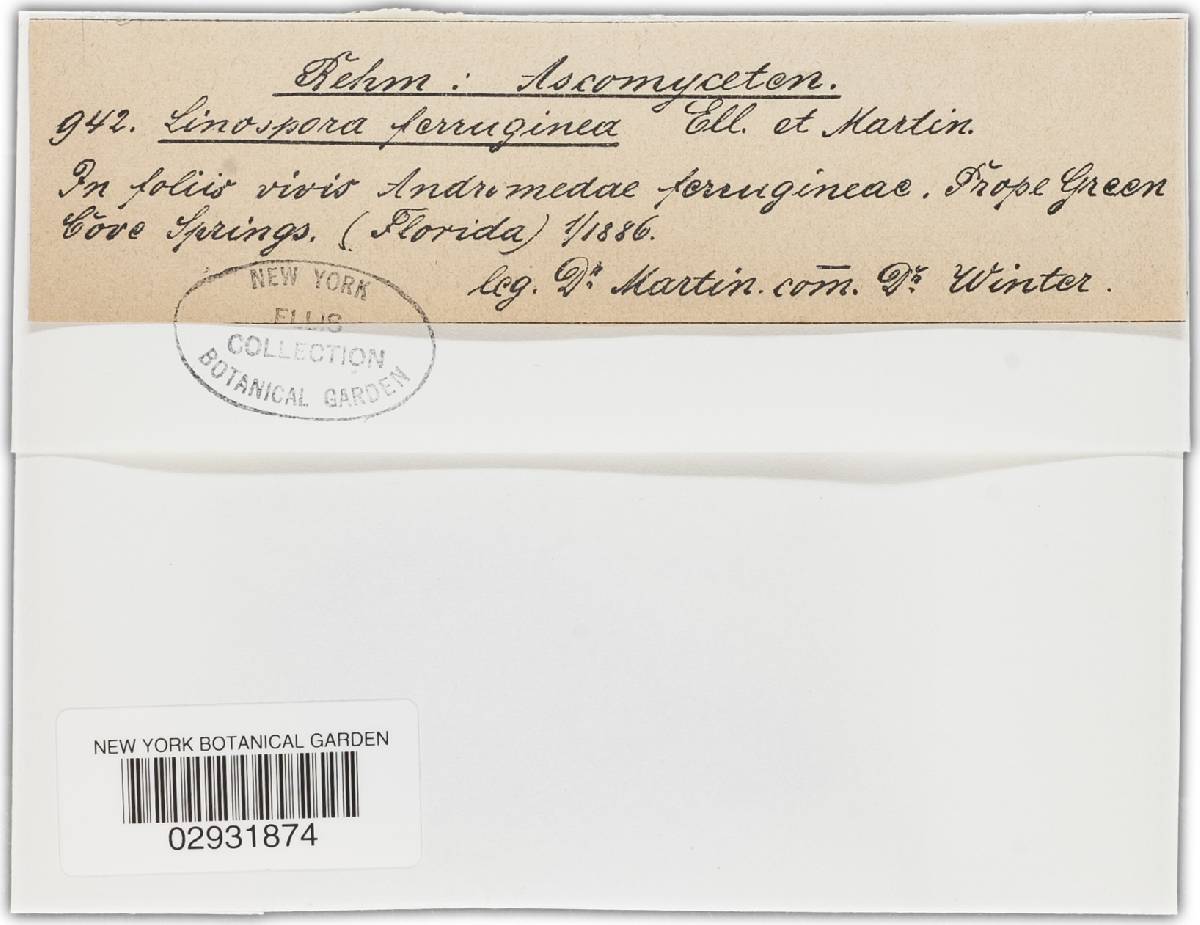 Rehm: Ascomyceten.
942. Linospora ferruginea Ell. et Martin.
In foliis vivis Andromedae ferrugineae. Prope Green
Cove Springs. (Florida) 1/1886.
leg. Dr. Martin. com̅. Dr. Winter.
NEW YORK
ELLIS
COLLECTION
BOTANICAL GARDEN
NEW YORK BOTANICAL GARDEN
02931874